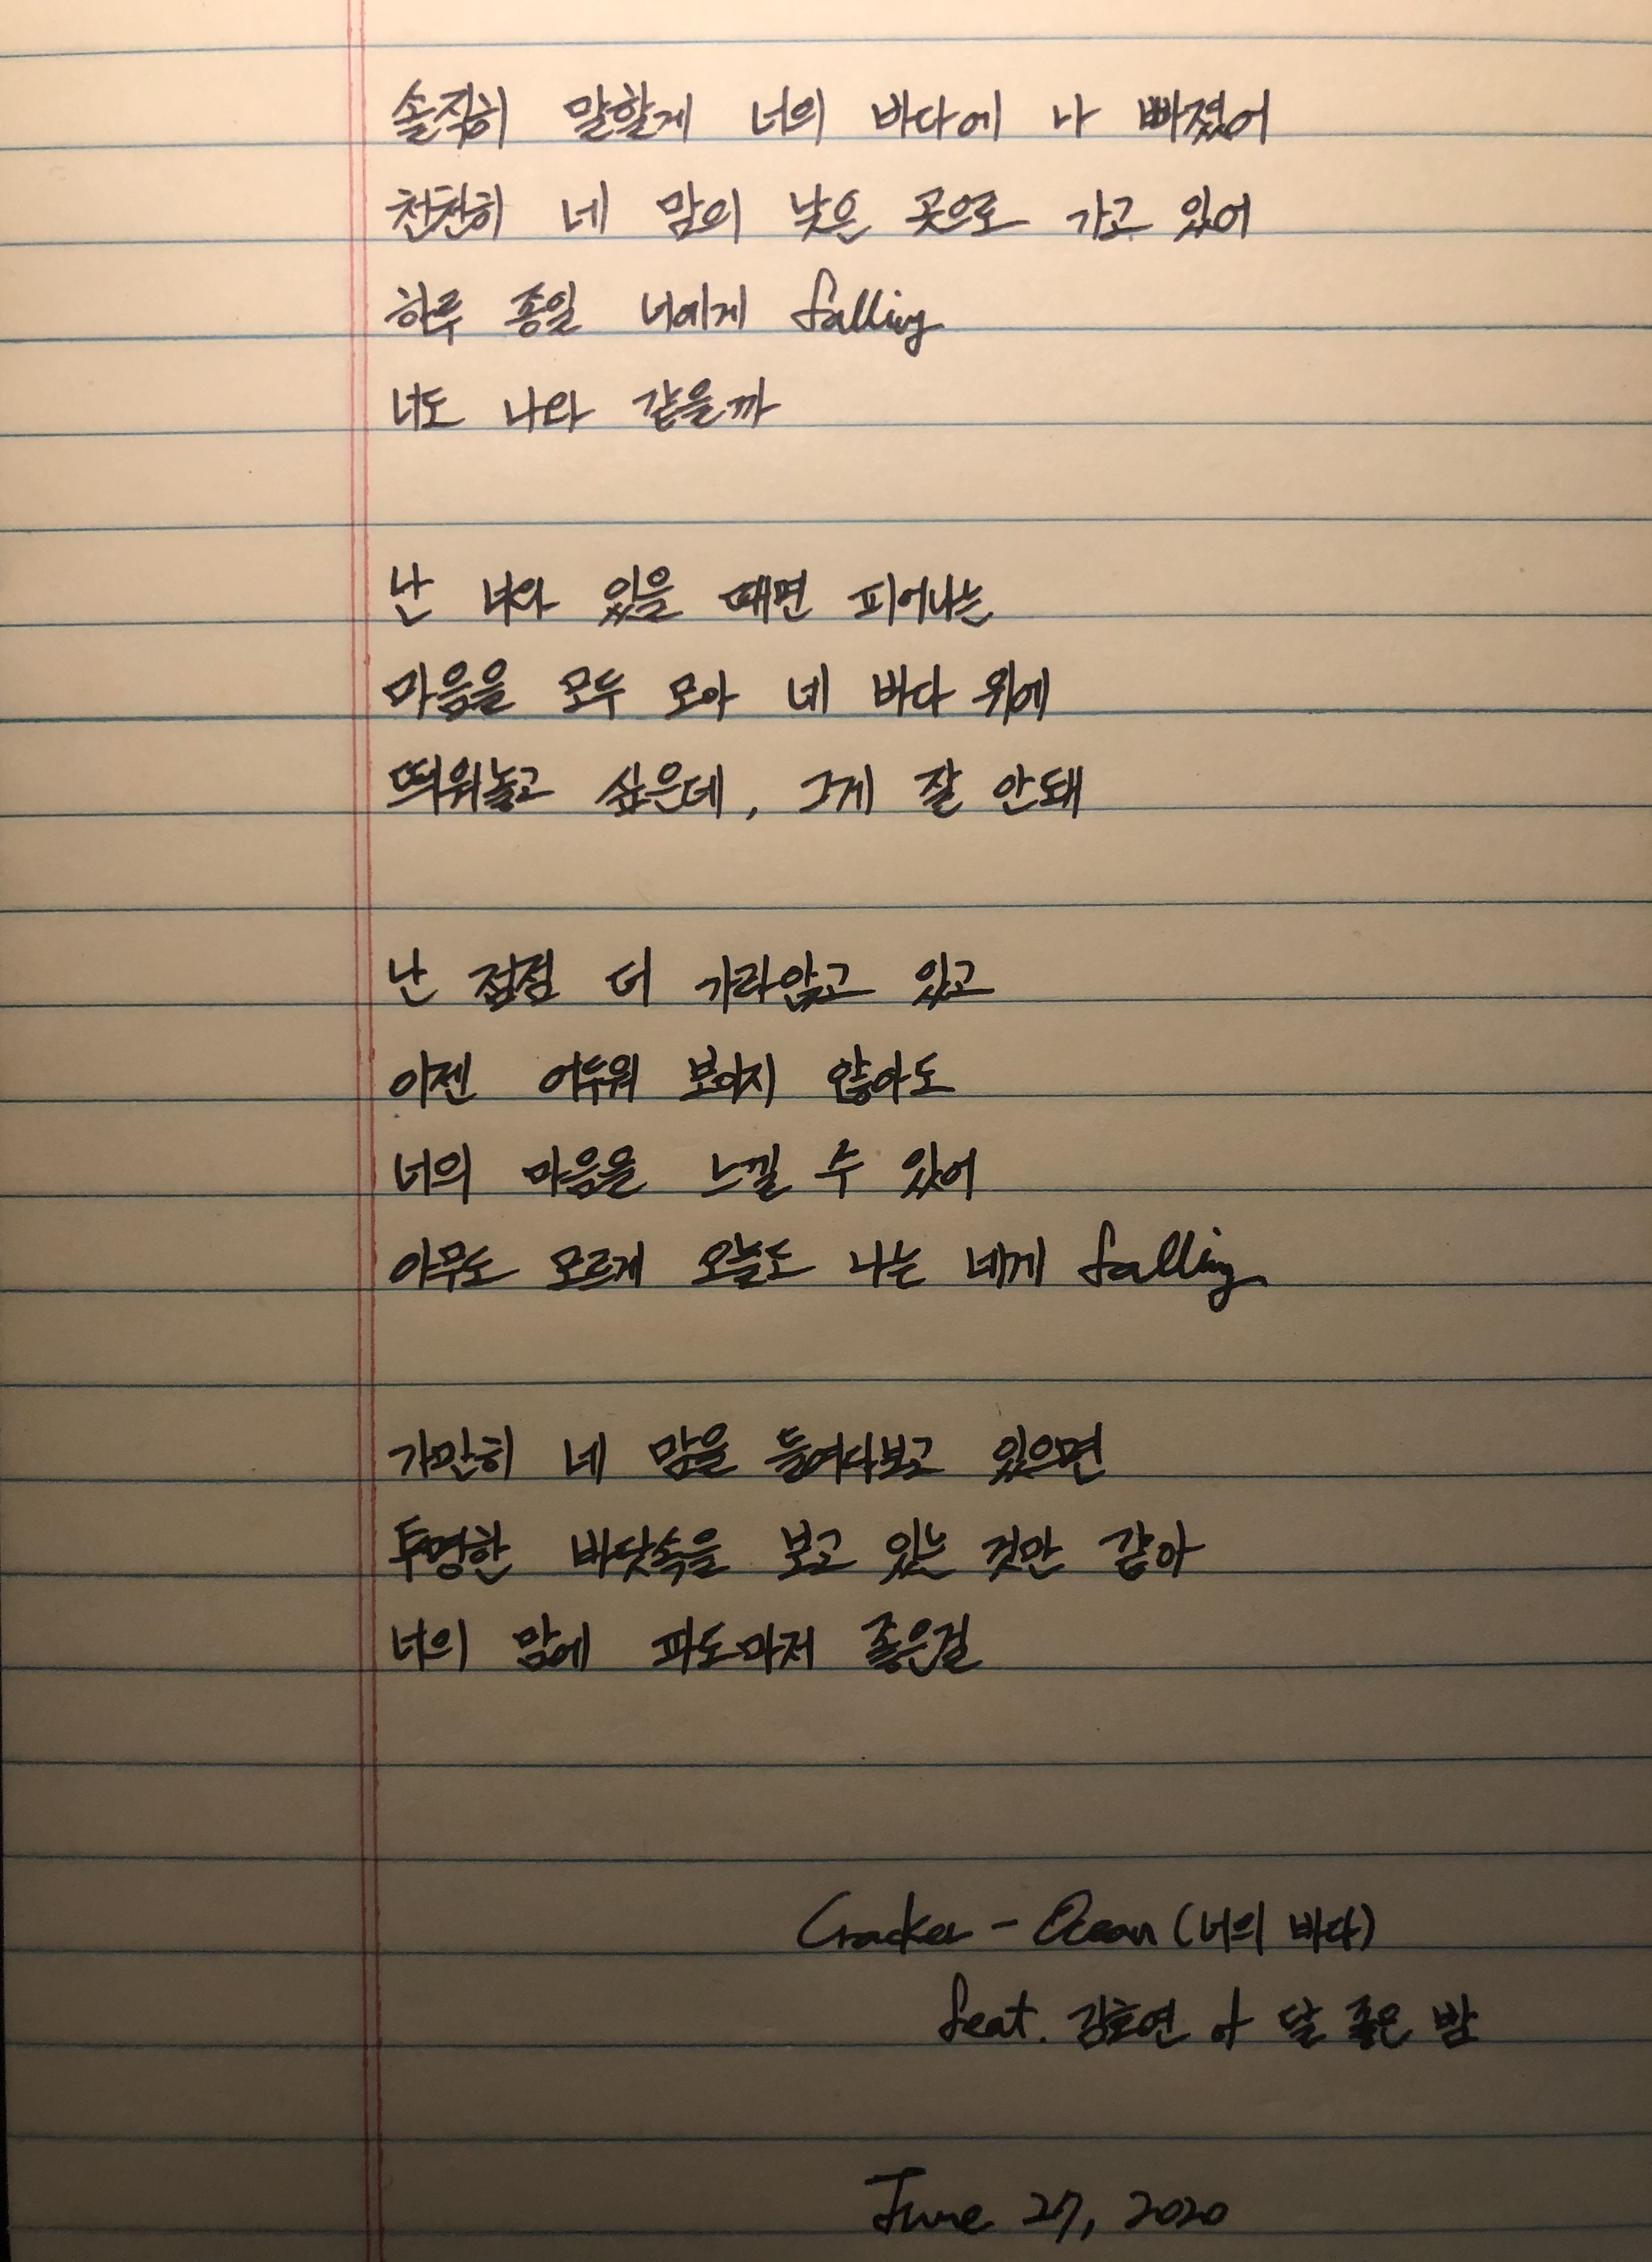 솔직히 말할게 너의 바다에 나 빠졌어
천천히 네 맘의 낮은 곳으로 가고 있어
하루 종일 너에게 falling
너도 나와 같을까
난 너와 있을 때면 피어나는
마음을 모두 모아 네 바다 위에
띄워놓고 싶은데, 그게 잘 안돼
난 점점 더 가라앉고 있고
이젠 어두워 보이지 않아도
너의 마음을 느낄 수 있어
아무도 모르게 오늘도 나는 네게 falling
가만히 네 맘을 들여다보고 있으면
투명한 바닷속을 보고 있는 것만 같아
너의 맘에 파도마저 좋은걸
Cracker - Ocean (너의 바다)
feat. 김호연 of 달 좋은 밤
June 27, 2020